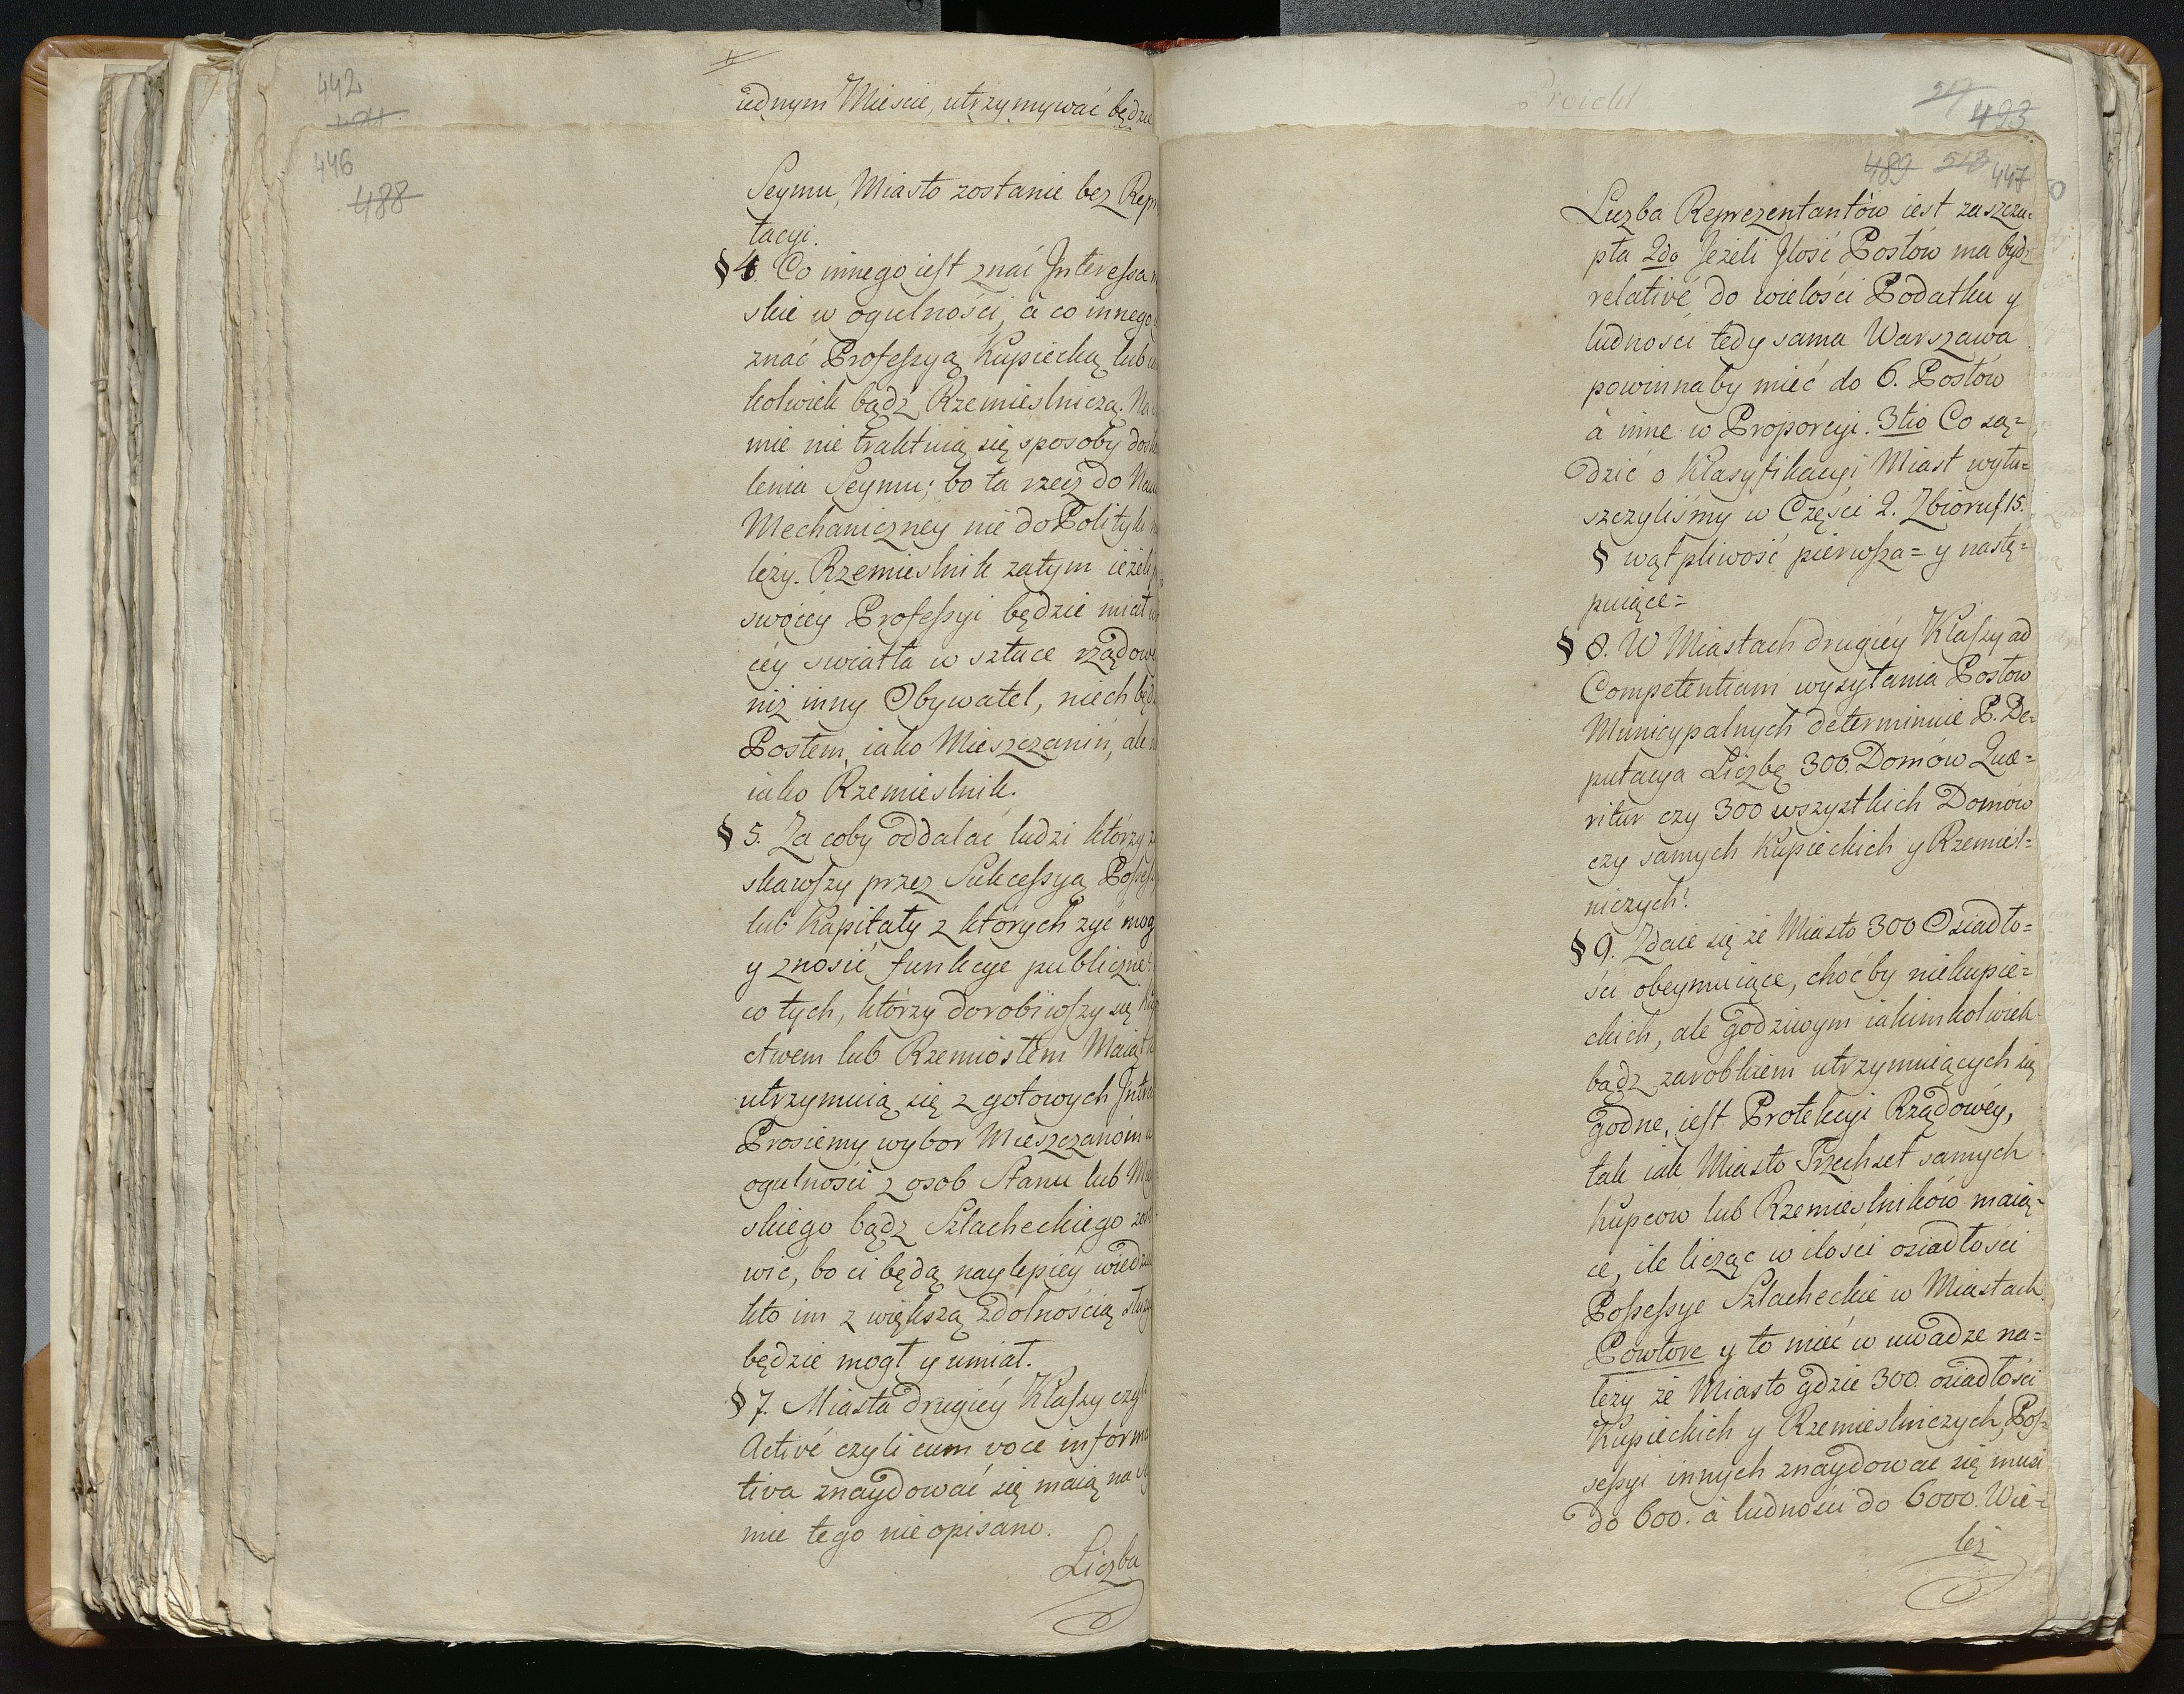 442
446
488
iednym Mieście, utrzymywać będzie
Seymu, Miasto zostanie bez Rep
tacyi.
§ 4. Co innego iest znać Interessa
skie w ogulności, à co innego
znać Professyą Kupiecką lub
kolwiek bądź Rzemieslniczą. Na
mie nie traktuią się sposoby dosko
lenia Seymu; bo ta rzecz do Nau
Mechaniczney nie do Polityki
leży. Rzemieslnik zatym ieżeli
swoiey Professyi będzie miał
cey swiatła w sztuce rządowe
niż inny Obywatel, niech będz
Posłem, iako Mieszczanin, ale
iako Rzemieslnik.
§ 5. Za coby oddalać ludzi którzy
skawszy przez Sukcessyą Possess
lub Kapitały z których żyć mog
y znosić funkcye publiczne?
co tych, którzy dorobiwszy się Ku
ctwem lub Rzemiosłem Maiąt
utrzymuią się z gotowych Intra
Prosiemy wybor Mieszczanom
ogulności z osob Stanu lub
skiego bądź Szlacheckiego zo
wić, bo ci będą naylepiey wiedzi
kto im z większą zdolnością słuz
będzie mogł y umiał.
§ 7. Miasta drugiey Klassy czyli
Activé czyli cum voce informa
tiva znaydować się maią na
mie tego nie opisano.
Liczba
493
489 513 447
Liczba Reprezentantów iest zaszczu=
pła 2do Jeżeli Ilość Posłów ma bydź
relativé do wielości Podatku y
ludności tedy sama Warszawa
powinnaby mieć do 6. Posłów
à inne w Proporcyi. 3tio Co są=
dzić o Klasyfikacyi Miast wyłu=
szczyliśmy w Części 2. Zbioru f 15.
§ wątpliwość pierwsza= y nastę=
puiące=
§ 8. W Miastach drugiey Klassy ad
Competentiam wysyłania Posłow
Municypalnych determinuie P. De=
putacya Liczbę 300. Domów Quæ=
ritur czy 300 wszystkich Domów
czy samych Kupieckich y Rzemiesl=
niczych?
§ 9. Zdaie się że Miasto 300 Osiadło=
ści obeymuiące, choćby niekupie=
ckich, ale godziwym iakimkolwiek
bądz zarobkiem utrzymuiących się
godne, iest Protekcyi Rządowéy,
tak iak Miasto Trzechset samych
Kupcow lub Rzemieslników maią=
ce, ile licząc w ilości osiadłości
Possessye Szlacheckie w Miastach.
Powtore y to mieć w uwadze na=
leży że Miasto gdzie 300. osiadłości
Kupieckich y Rzemieslniczych, Pos=
sessyi innych znaydować się musi
do 600. à ludności do 6000. Wie=
leż